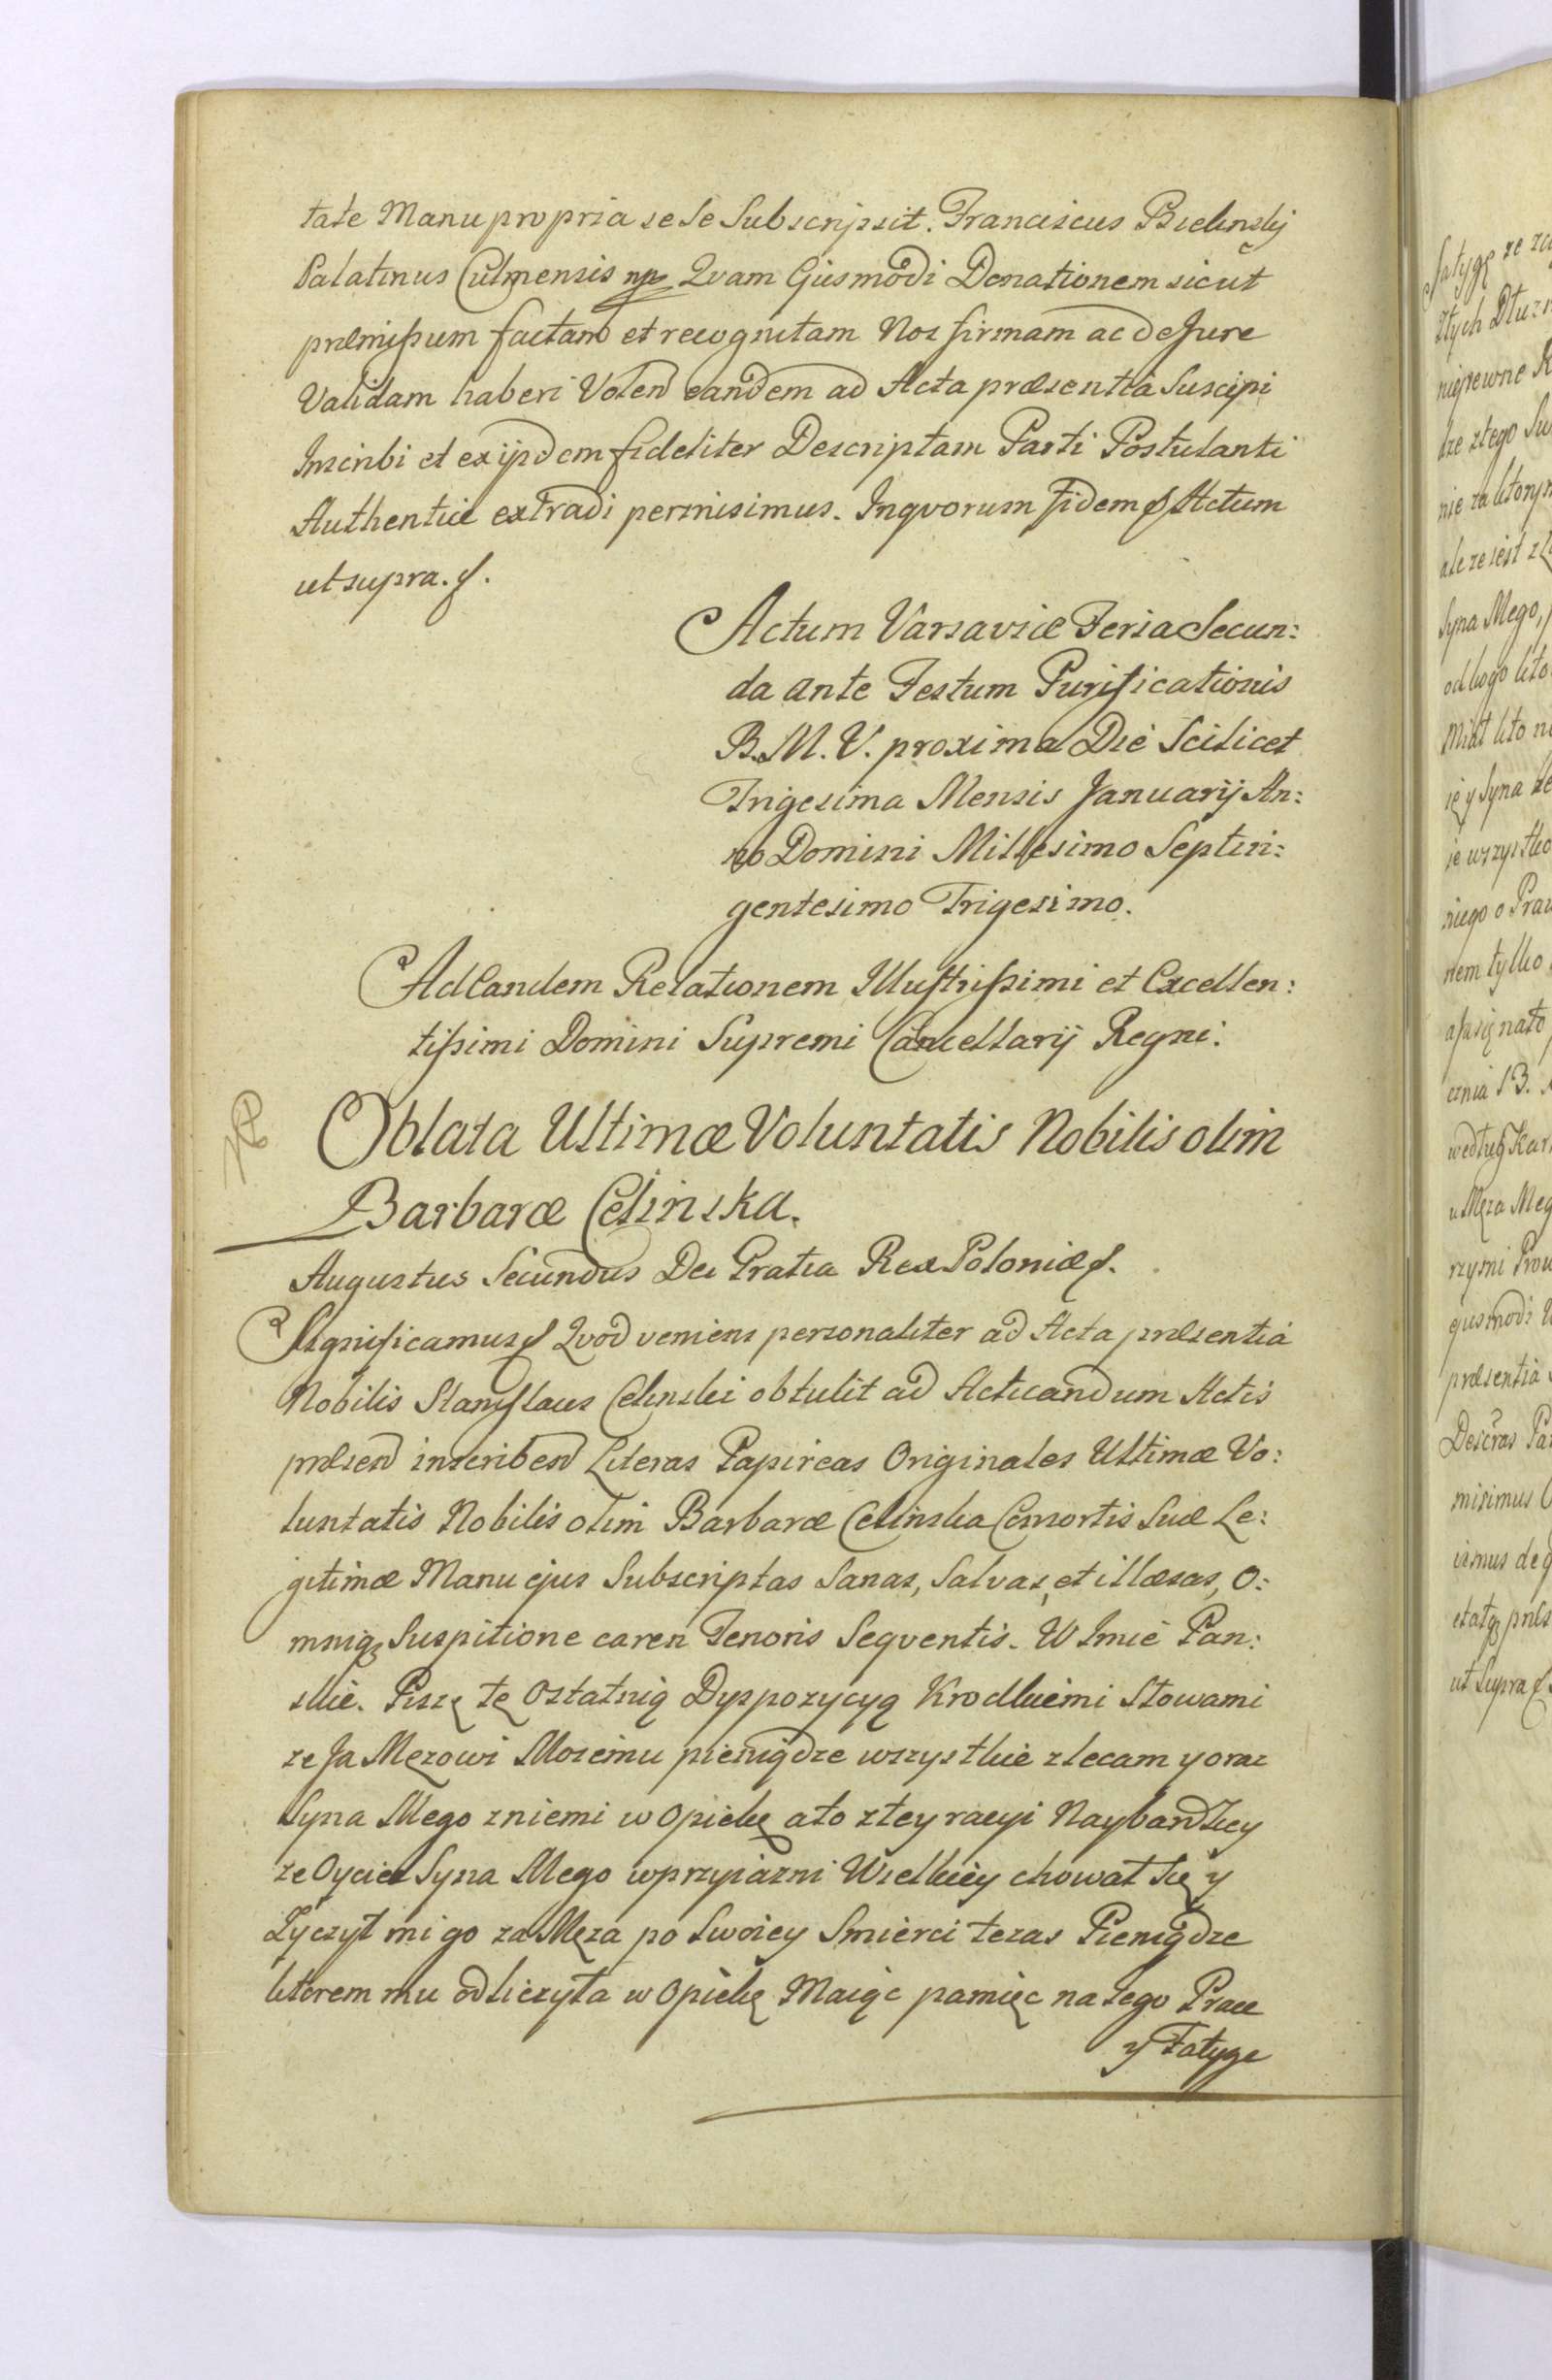 tate Manu propria se se Subscripsit. Franciscus Bielinsky
Palatinus Culmensis mp Qvam Gusmodi Donationem sicut
præmissum factam et recognitam Nos firmam ac de Jure
Validam haberi Volen eandem ad Acta præsentia Suscipi
Inscribi et ex ijsdem fideliter Descriptam Parti Postulanti
Authentice extradi permisimus. Inqvorum fidem & Actum
ut supra. &.
Actum Varsaviæ Feria Secun:
da ante Festum Purificationis
B. M. V. proxima Die Scilicet
Trigesima Mensis Januarij An:
no Domini Millesimo Septin:
gentesimo Trigesimo.
Ad Eandem Relationem Illustrissimi et Excellen:
tissimi Domini Supremi Cancellarij Regni.
Oblata Ultimæ Voluntatis Nobilis olim
Barbaræ Celinska.
Augustus Secundus Dei Gratia Rex Poloniæ &.
Significamus & Qvod veniens personaliter ad Acta præsentia
Nobilis Stanislaus Celinski obtulit ad Acticandum Actis
præsen inscriben Literas Papireas Originales Ultimæ Vo:
luntatis Nobilis olim Barbaræ Celinska Consortis Suæ Le:
gitimæ Manu ejus Subscriptas Sanas, Salvas, et illæsas, O:
mniq Suspitione caren Tenoris Seqventis. W Imie Pan:
skie. Piszę tę Ostatnią Dyspozycyą Krodkiemi Słowami
ze Ja Męzowi Moiemu pieniądze wszystkie zlecam y oraz
Syna Mego zniemi w Opiekę ato ztey racyi Naybardziey
ze Oyciec Syna Mego wprzyiazni Wielkiey chował Się y
Zyczył mi go za Męza po Swoiey Smierci tezas Pieniądze
ktorem mu odliczyła w Opiekę Maiąc pamięc na Jego Prace
y Fatygę
Fatygę ze
ztych Dłuz
niepewne
dze ztego
nie za ktorym
ale ze iest z
Syna Mego,
od kogo kto
Miał kto
ię y Syna
ie wszystko
niego o
nem tylko
assignato
cznia 13.
według
u Męza Meg
rzysni
ejusmodi
præsentia
Descras
misimus
issimus de
etatq præs
ut Supra &